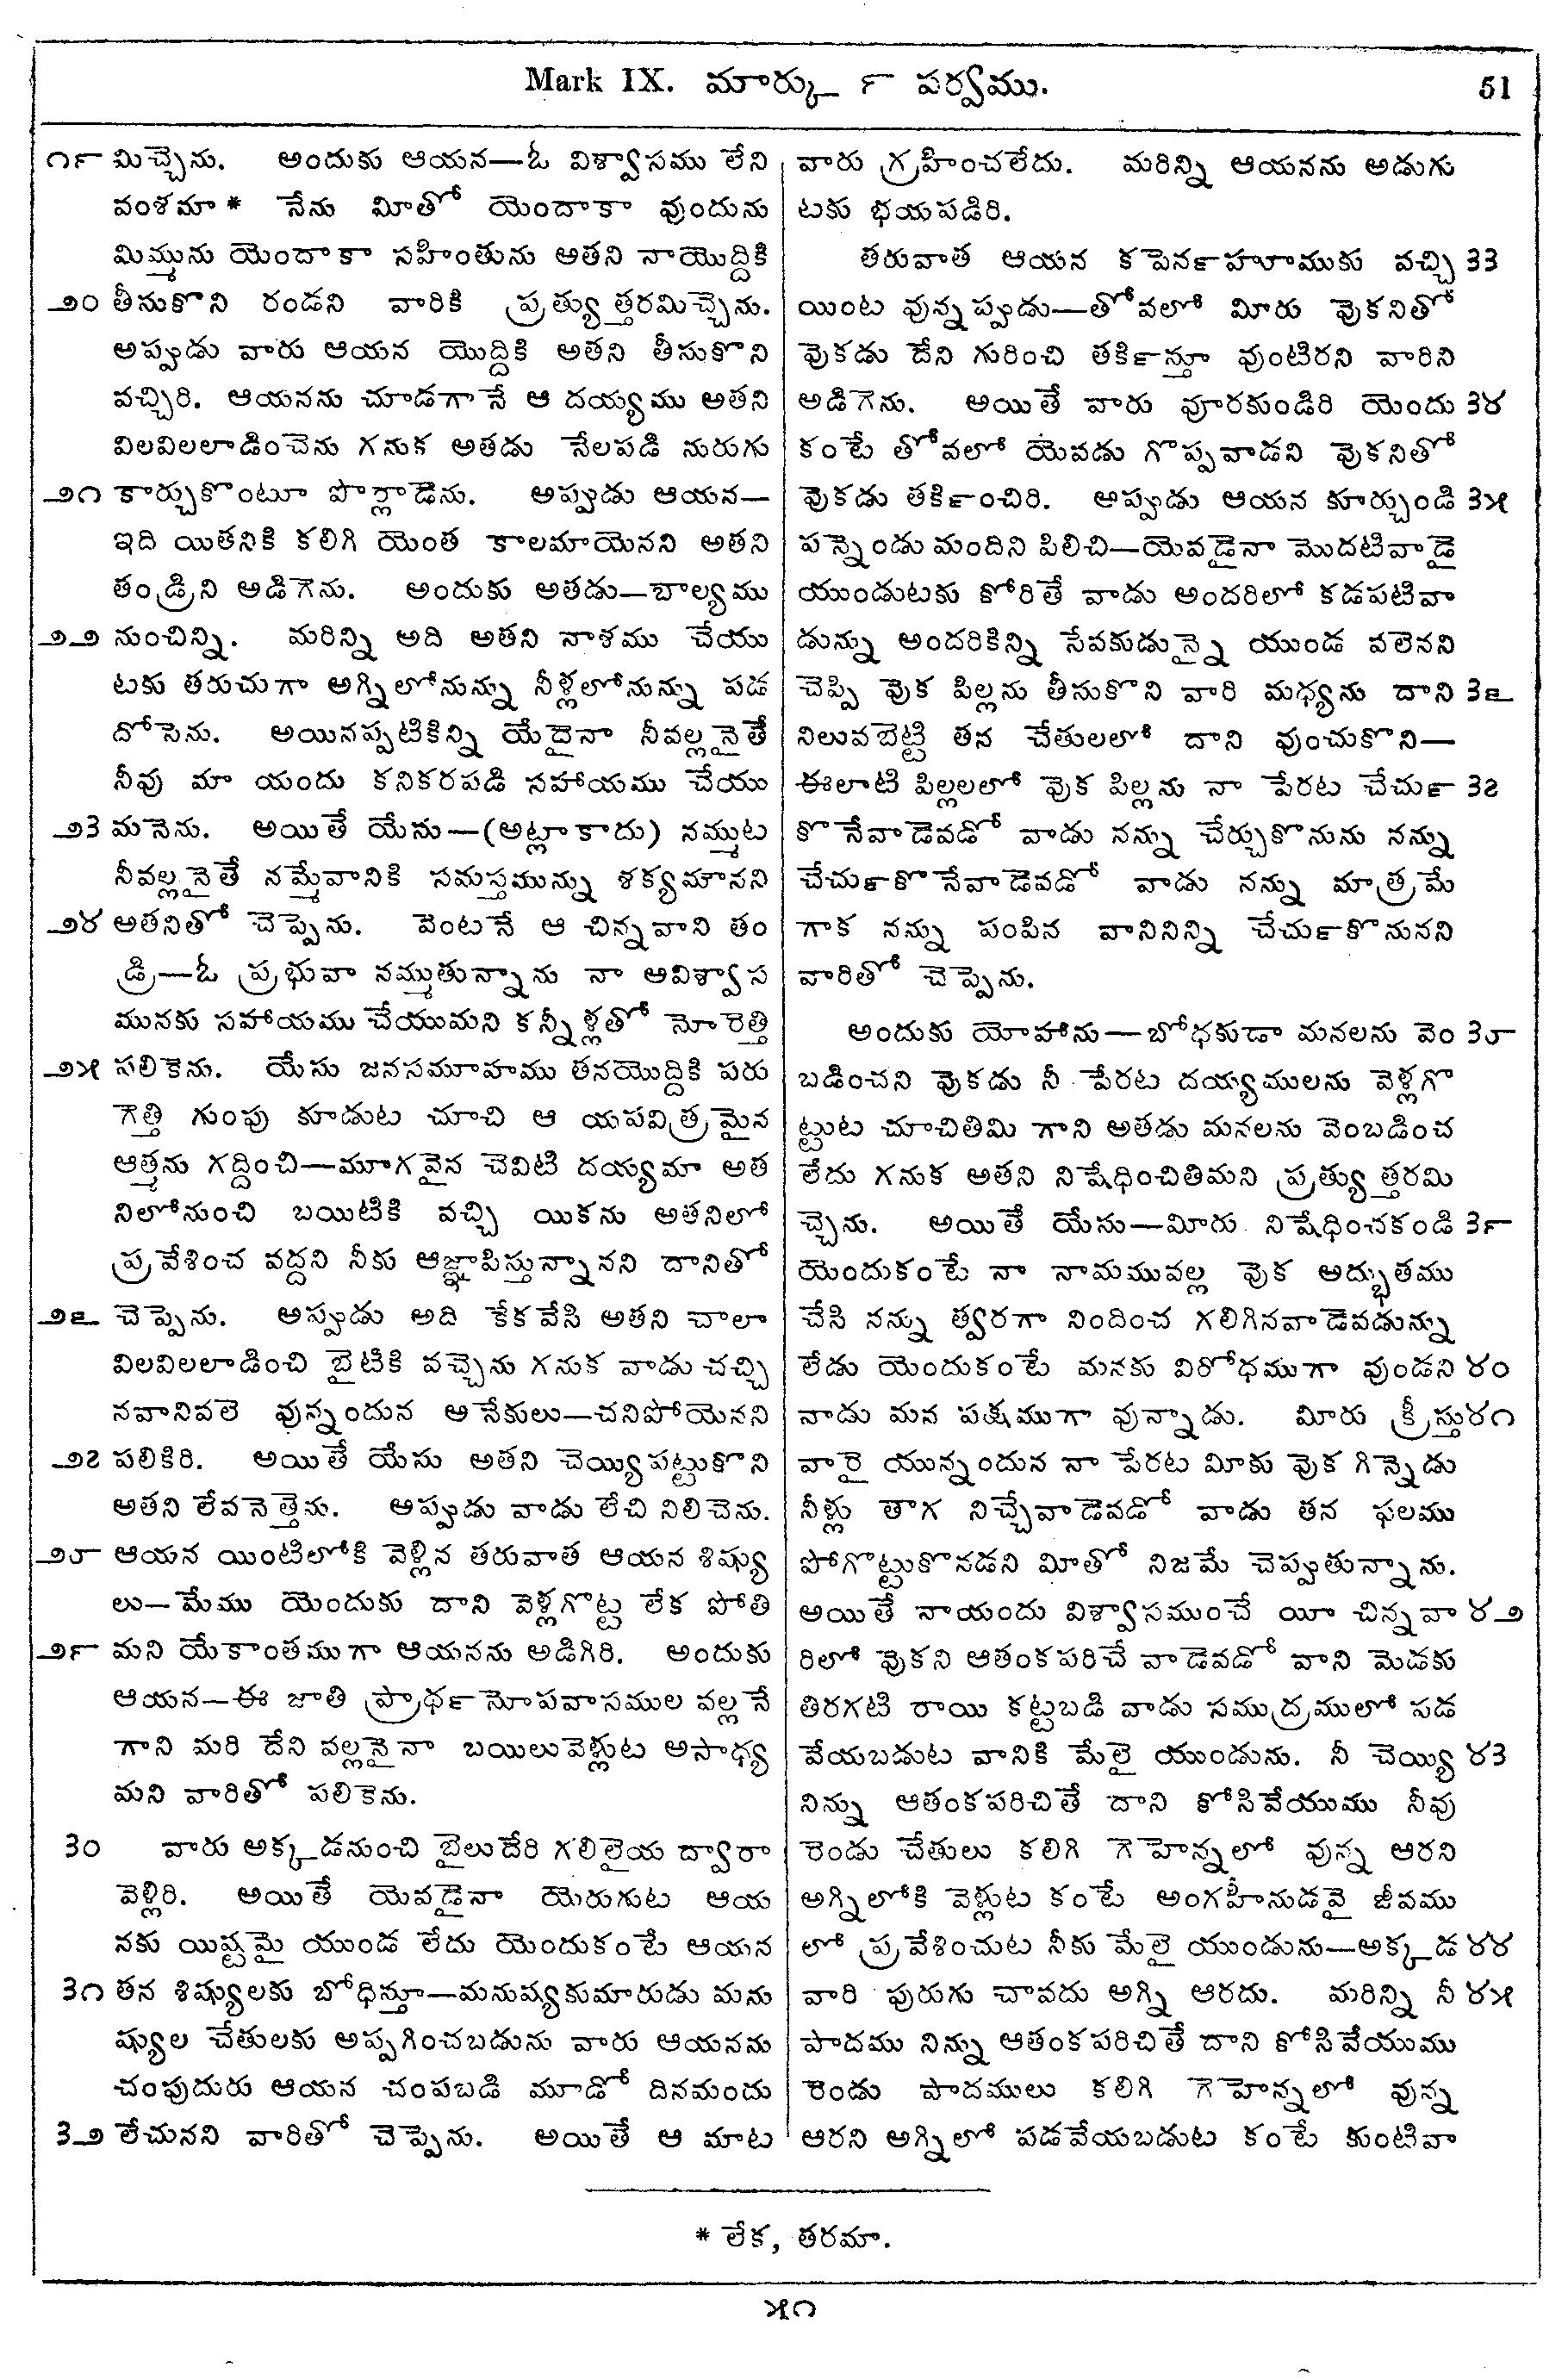 Mark IX. మార్కు ౯ పర్వము. 51
౧౯ మిచ్చెను. అందుకు ఆయన—ఓ విశ్వాసము లేని
వంశమా * నేను మీతో యెందాకా వుందును
మిమ్మును యెందాకా సహింతును అతని నాయొద్దికి
౨౦ తీసుకొని రండని వారికి ప్రత్యుత్తరమిచ్చెను.
అప్పుడు వారు ఆయన యొద్దికి అతని తీసుకొని
వచ్చిరి. ఆయనను చూడగానే ఆ దయ్యము అతని
విలవిలలాడించెను గనుక అతడు నేలపడి నురుగు
౨౧ కార్చుకొంటూ పొర్లాడెను. అప్పుడు ఆయన—
ఇది యితనికి కలిగి యెంత కాలమాయెనని అతని
తండ్రిని అడిగెను. అందుకు అతడు—బాల్యము
౨౨ నుంచిన్ని. మరిన్ని అది అతని నాశము చేయు
టకు తరుచుగా అగ్నిలోనున్ను నీళ్లలోనున్ను పడ
దోసెను. అయినప్పటికిన్ని యేదైనా నీవల్లనైతే
నీవు మా యందు కనికరపడి సహాయము చేయు
౨౩ మనెను. అయితే యేసు—(అట్లాకాదు) నమ్ముట
నీవల్లనైతే నమ్మేవానికి సమస్తమున్ను శక్యమౌనని
౨౪ అతనితో చెప్పెను. వెంటనే ఆ చిన్నవాని తం
డ్రి—ఓ ప్రభువా నమ్ముతున్నాను నా అవిశ్వాస
మునకు సహాయము చేయుమని కన్నీళ్లతో నోరెత్తి
౨౫ పలికెను. యేసు జనసమూహము తనయొద్దికి పరు
గెత్తి గుంపు కూడుట చూచి ఆ యపవిత్రమైన
ఆత్మను గద్దించి—మూగవైన చెవిటి దయ్యమా అత
నిలోనుంచి బయిటికి వచ్చి యికను అతనిలో
ప్రవేశించ వద్దని నీకు ఆజ్ఞాపిస్తున్నానని దానితో
౨౬ చెప్పెను. అప్పుడు అది కేకవేసి అతని చాలా
విలవిలలాడించి బైటికి వచ్చెను గనుక వాడు చచ్చి
నవానివలె వున్నందున అనేకులు—చనిపోయెనని
౨౭ పలికిరి. అయితే యేసు అతని చెయ్యి పట్టుకొని
అతని లేవనెత్తెను. అప్పుడు వాడు లేచి నిలిచెను.
౨౮ ఆయన యింటిలోకి వెళ్లిన తరువాత ఆయన శిష్యు
లు—మేము యెందుకు దాని వెళ్లగొట్ట లేక పోతి
౨౯ మని యేకాంతముగా ఆయనను అడిగిరి. అందుకు
ఆయన—ఈ జాతి ప్రాథ౯నోపవాసముల వల్లనే
గాని మరి దేని వల్లనైనా బయిలువెళ్లుట అసాధ్య
మని వారితో పలికెను.
౩౦ వారు అక్కడనుంచి బైలుదేరి గలిలైయ ద్వారా
వెళ్లిరి. అయితే యెవడైనా యెరుగుట ఆయ
నకు యిష్టమై యుండ లేదు యెందుకంటే ఆయన
౩౧ తన శిష్యులకు బోధిస్తూ—మనుష్యకుమారుడు మను
ష్యుల చేతులకు అప్పగించబడును వారు ఆయనను
చంపుదురు ఆయన చంపబడి మూడో దినమందు
౩౨ లేచునని వారితో చెప్పెను. అయితే ఆ మాట
వారు గ్రహించలేదు. మరిన్ని ఆయనను అడుగు
టకు భయపడిరి.
తరువాత ఆయన కపెన౯హూముకు వచ్చి ౩౩
యింట వున్నప్పుడు—తోవలో మీరు వొకనితో
వొకడు దేని గురించి తకి౯స్తూ వుంటిరని వారిని
అడిగెను. అయితే వారు వూరకుండిరి యెందు ౩౪
కంటే తోవలో యెవడు గొప్పవాడని వొకనితో
వొకడు తకి౯ంచిరి. అప్పుడు ఆయన కూర్చుండి ౩౫
పన్నెండు మందిని పిలిచి—యెవడైనా మొదటివాడై
యుండుటకు కోరితే వాడు అందరిలో కడపటివా
డున్ను అందరికిన్ని సేవకుడున్నై యుండ వలెనని
చెప్పి వొక పిల్లను తీసుకొని వారి మధ్యను దాని ౩౬
నిలువబెట్టి తన చేతులలో దాని వుంచుకొని—
ఈలాటి పిల్లలలో వొక పిల్లను నా పేరట చేచు౯ ౩౭
కొనేవాడెవడో వాడు నన్ను చేర్చుకొనును నన్ను
చేచు౯కొనేవాడెవడో వాడు నన్ను మాత్రమే
గాక నన్ను పంపిన వానినిన్ని చేచు౯కొనునని
వారితో చెప్పెను.
అందుకు యోహాను—బోధకుడా మనలను వెం ౩౮
బడించని వొకడు నీ పేరట దయ్యములను వెళ్లగొ
ట్టుట చూచితిమి గాని అతడు మనలను వెంబడించ
లేదు గనుక అతని నిషేధించితిమని ప్రత్యుత్తరమి
చ్చెను. అయితే యేసు—మీరు నిషేధించకండి ౩౯
యెందుకంటే నా నామమువల్ల వొక అద్భుతము
చేసి నన్ను త్వరగా నిందించ గలిగినవాడెవడున్ను
లేడు యెందుకంటే మనకు విరోధముగా వుండని ౪౦
వాడు మన పక్షముగా వున్నాడు. మీరు క్రీస్తు ౪౧
వారై యున్నందున నా పేరట మీకు వొక గిన్నెడు
నీళ్లు తాగ నిచ్చేవాడెవడో వాడు తన ఫలము
పోగొట్టుకొనడని మీతో నిజమే చెప్పుతున్నాను.
అయితే నాయందు విశ్వాసముంచే యీ చిన్నవా ౪౨
రిలో వొకని ఆతంకపరిచే వాడెవడో వాని మెడకు
తిరగటి రాయి కట్టబడి వాడు సముద్రములో పడ
వేయబడుట వానికి మేలై యుండును. నీ చెయ్యి ౪౩
నిన్ను ఆతంకపరిచితే దాని కోసివేయుము నీవు
రెండు చేతులు కలిగి గెహెన్నలో వున్న ఆరని
అగ్నిలోకి వెళ్లుట కంటే అంగహీనుడవై జీవము
లో ప్రవేశించుట నీకు మేలై యుండును—అక్కడ ౪౪
వారి పురుగు చావదు అగ్ని ఆరదు. మరిన్ని నీ ౪౫
పాదము నిన్ను ఆతంకపరిచితే దాని కోసివేయుము
రెండు పాదములు కలిగి గెహెన్నలో వున్న
ఆరని అగ్నిలో పడవేయబడుట కంటే కుంటివా
* లేక, తరమా.
౫౧